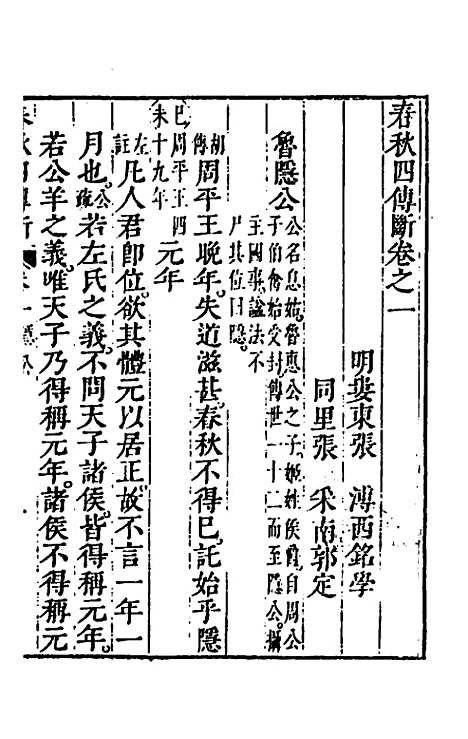 春秋四傳斷卷之一
明婁東張　溥西銘學
同里張　采南郭定
魯隱公公名息姑魯惠公之子姬姓侯爵自周公
子伯禽始受封傳世一十二而至隱公攝
主國事諡法不
尸其位曰隱
胡傳周平王晚年失道滋甚春秋不得已託始乎隱
己未周平王四十九年元年
左註凡人君即位欲其體元以居正故不言一年一
月也公疏若左氏之義不問天子諸侯皆得稱元年
若公羊之義唯天子乃得稱元年諸侯不得稱元